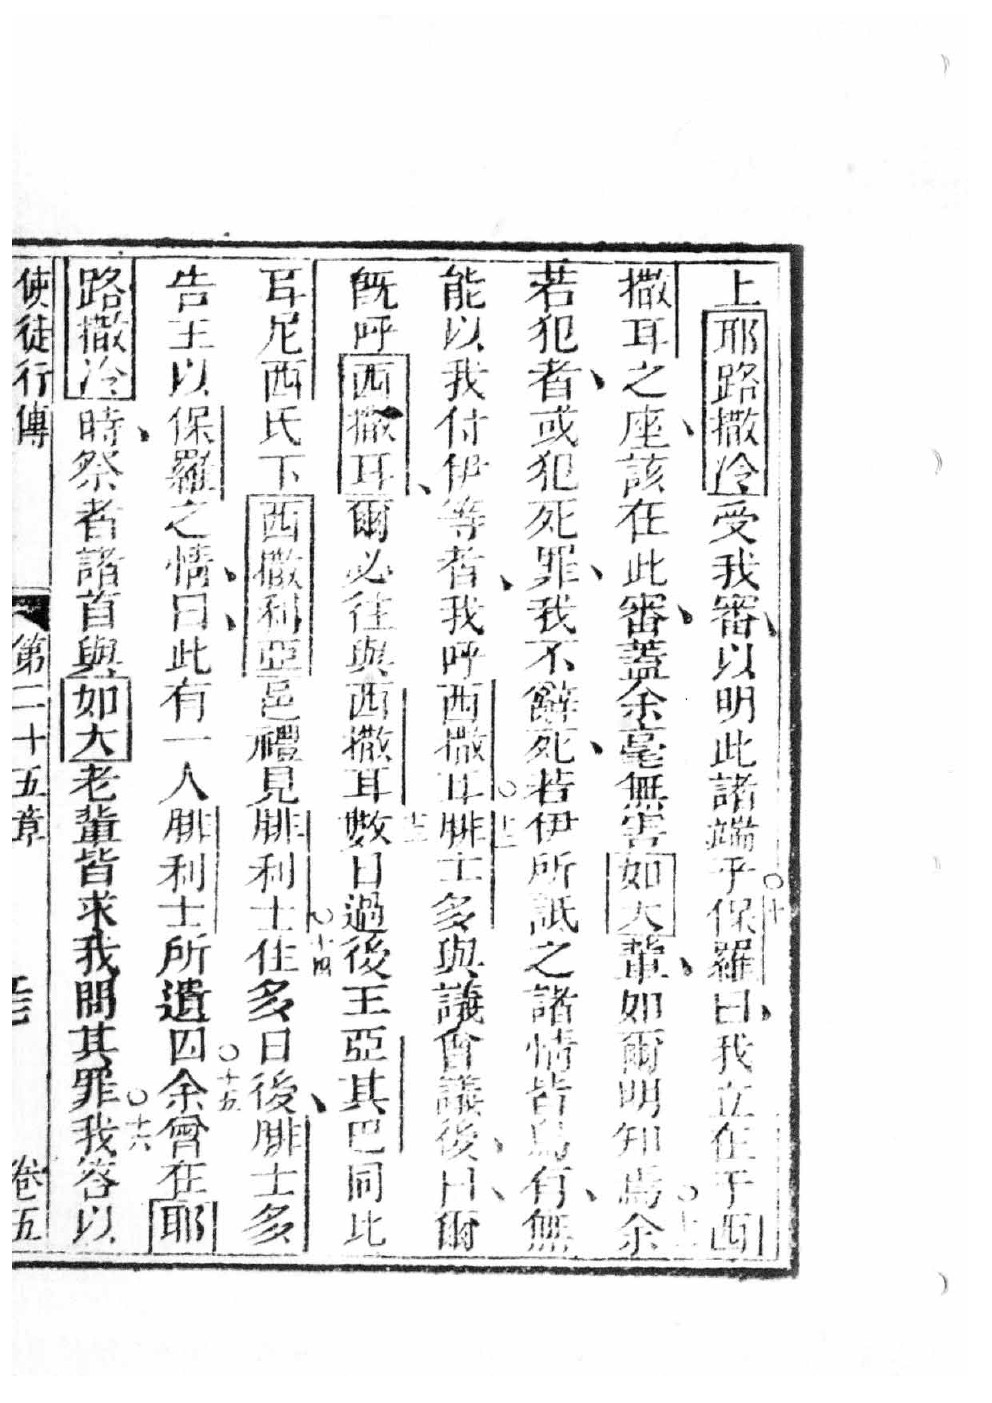 上耶路撒冷受我審、以明此諸端乎○十保羅曰、我立在于西
撒耳之座、該在此審、蓋余毫無害如大輩、如爾明知焉○十一余
若犯者、或犯死罪、我不辭死、若伊所詆之諸情皆烏有、無
能以我付伊等者、我呼西撒耳○十二腓士多與議會議後、曰、爾
旣呼西撒耳、爾必往與西撒耳十三數日過後王亞其巴同比
耳尼西氏下西撒利亞邑禮見腓利士○十四住多日後、腓士多
告王以保羅之情、曰、此有一人腓利士所遺囚○十五余曾在耶
路撒冷時、祭者諸首與如大老輩皆求我問其罪○十六我答以
使徒行傳 第二十五章 卷五